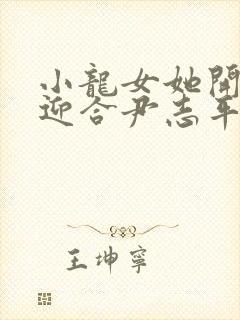 小龍女她開
迎合尹志平
王坤寧